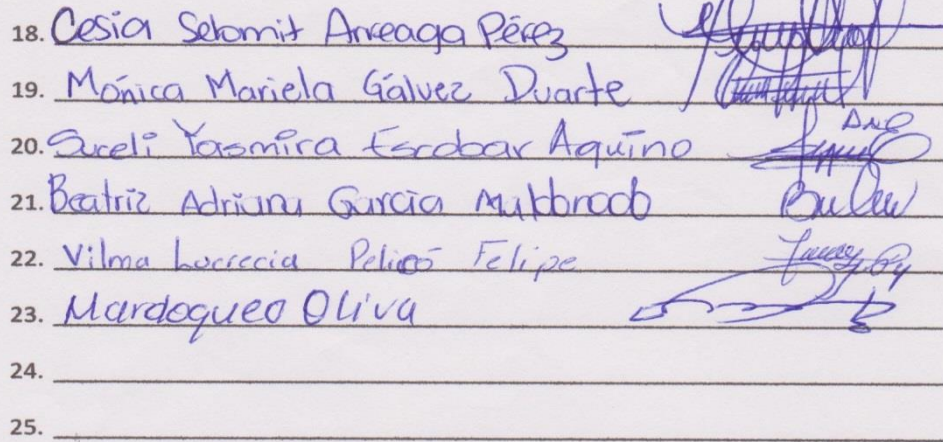 18. Cesia Selomit Arreaga Pérez
19. Mónica Mariela Gálvez Duarte
20. Sureli Yasmira Escobar Aquino
21. Beatriz Adriana García Maldonado
22. Vilma Lucrecia Pelicó Felipe
23. Mardoqueo Oliva
24.
25.